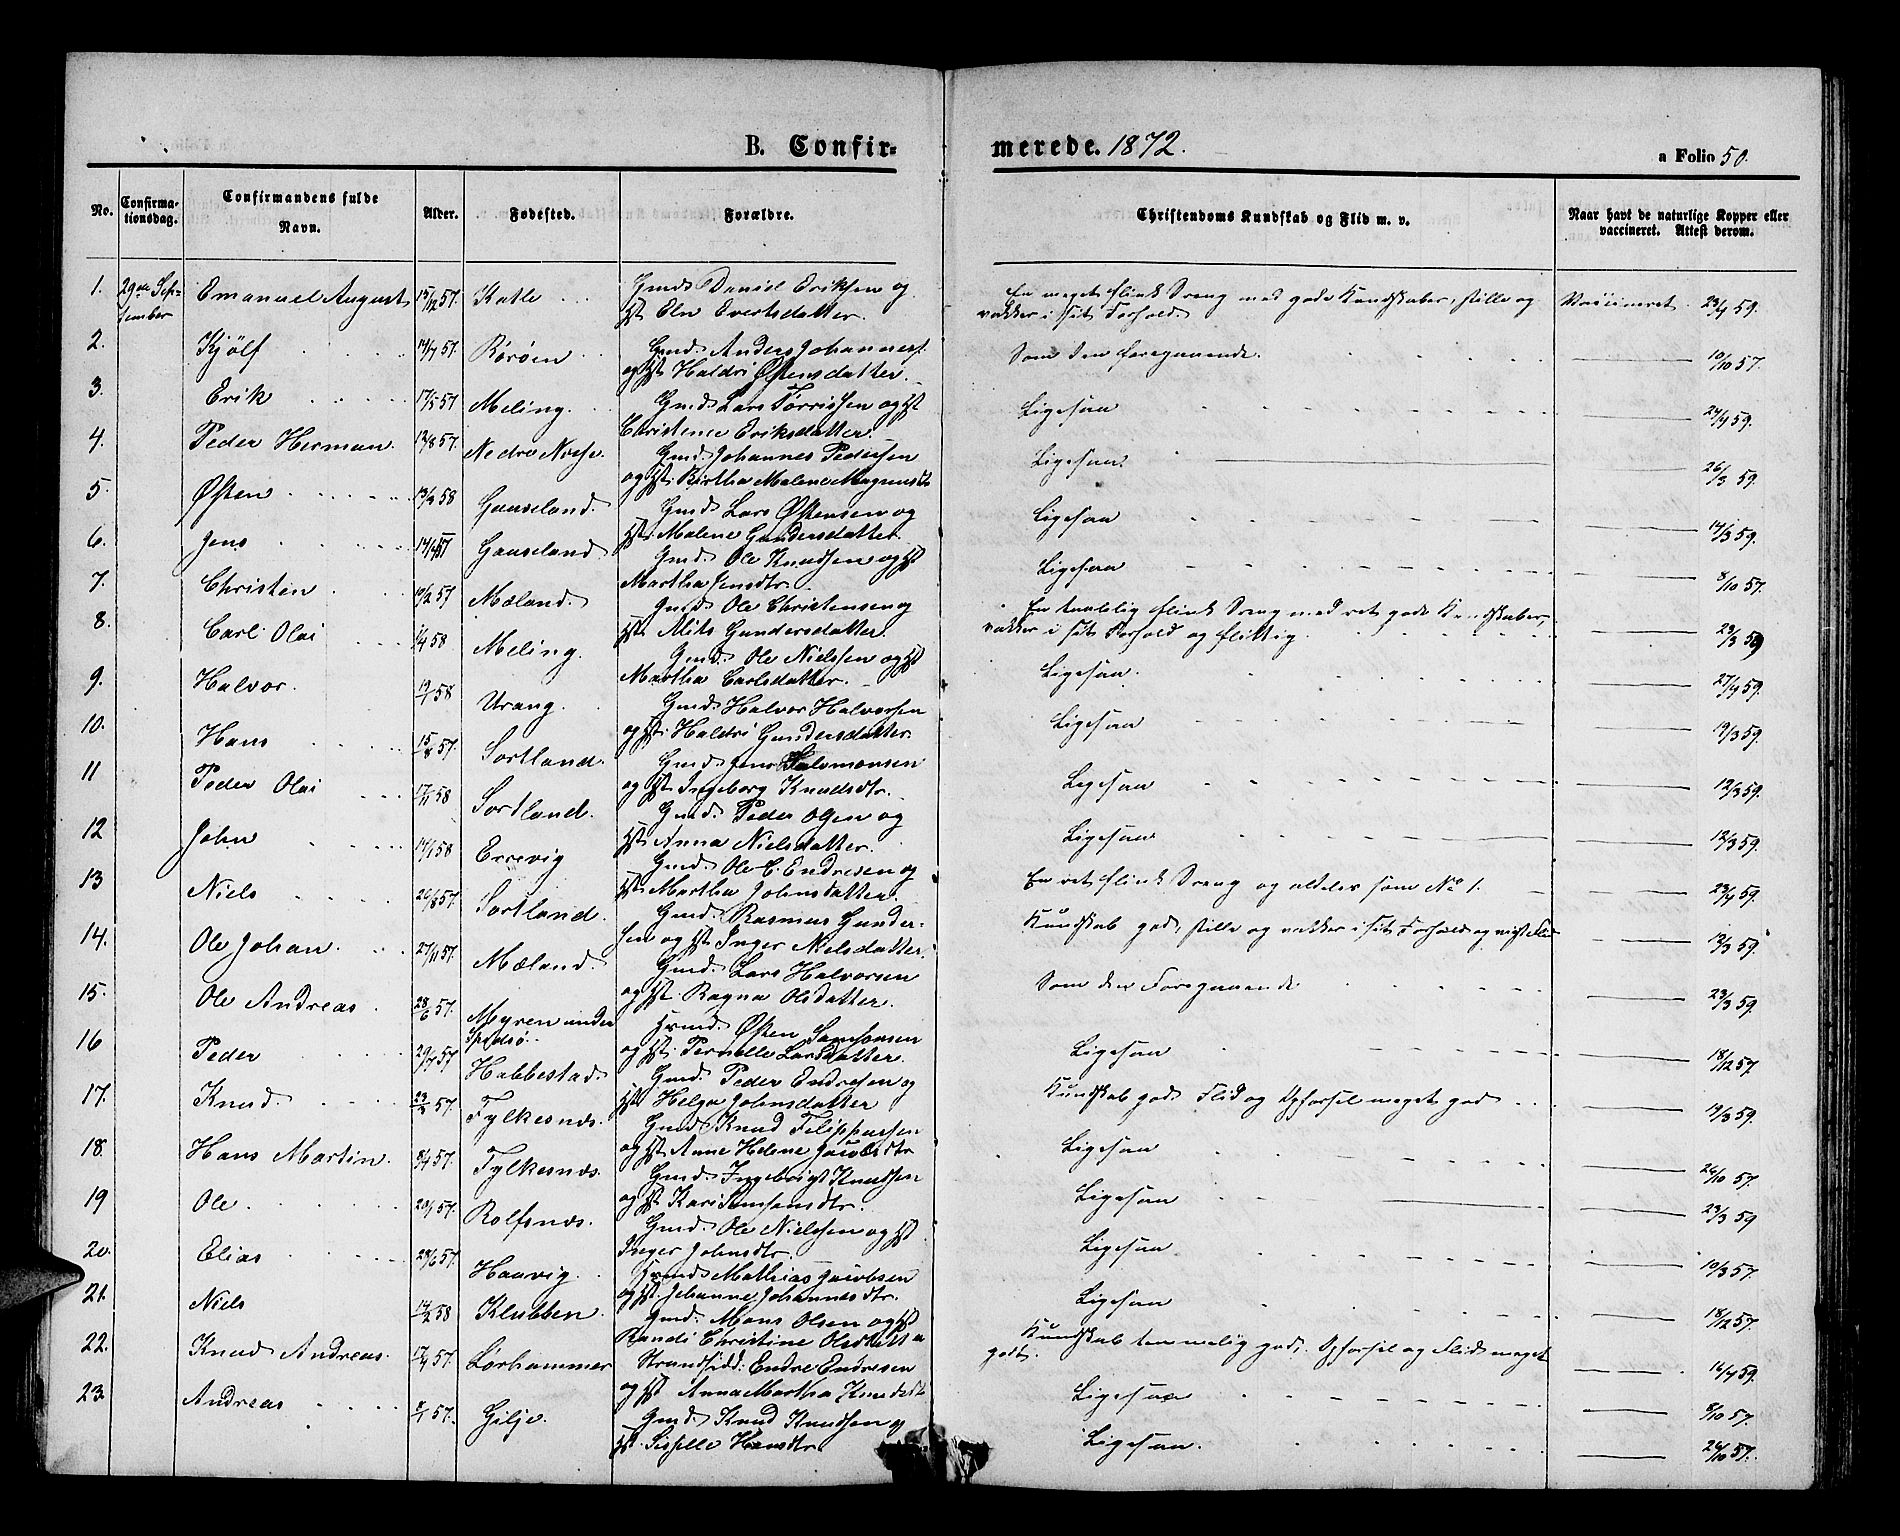 B. Confir- merede. 1872.
a Folio 50.
No. Confirma-tionsdag. Confirmandens fulde Navn. Alder. Fødested. Forældre. Christendoms Kundskab og Flid m. v. Naar havt de naturlige Kopper eller vaccineret. Attest derom.
1. 29de Sep- Emanuel August 15/12 57. Katle Gmd. Daniel Eriksen og En meget flink Dreng med gode Kundskaber, stille og Vaccineret 23/4 59.
tember st. Eln Evertsdatter. vakker i sit Forhold.
2. Kjølf 14/7 57. Rørøen Gmd. Anders Johanness. Som den foregaaende. 10/10 57.
og st. Haldri Østensdatter.
3. Erik 17/5 57 Meling. Gmd. Lars Tørrissen og st Ligesaa 24/4 59.
Christence Eriksdatter.
4. Peder Herman 13/8 57. Nedre Gmd. Johannes Pedersen Ligesaa. 26/3 59.
og st. Birtha Malene Magnusdt
5. Østen 13/3 58 Gauseland. Gmd. Lars Østensen og Ligesaa 14/3 59.
st. Malene Gundersdatter.
6. Jens Gauseland Gmd. Ole Knudsen og st Ligesaa 8/10 57.
Martha Jensdtr.
7. Christen 10/2 57 Mæland. Gmd. Ole Christensen og En taalelig flink Dreng med ret gode Kundskaber, 23/3 59
st. Mits Gundersdatter. vakker i sit Forhold og flittig.
8. Carl Olai 1/4 58 Meling. Gmd. Ole Nielsen og st Ligesaa. 27/4 59.
Martha Carlsdatter.
9. Halvor. 19/1 58 Urang. Gmd. Halvor Halvorsen Ligesaa 19/3 59.
og st. Haldri Gundersdatter.
10. Hans 15/8 57. Sortland. Gmd. Jens Salomonsen Ligesaa 12/3 59.
og st. Ingeborg Knudsdtr.
11 Peder Olai 17/1 58 Sortland. Gmd. Peder Olsen og Ligesaa. 12/3 59.
st. Anna Nielsdatter.
12 John 14/1 58 Errevig Gmd. Ole C. Endresen og En ret flink Dreng og aldeles som No 1. 23/4 59.
st. Martha Johnsdatter.
13 Niels 20/8 57. Sortland. Gmd. Rasmus Gunder- Kundskab god, stille og vakker i sit Forhold og 12/3 59.
sen og st. Inger Nielsdatter.
14. Ole Johan. 27/11 57. Mæland. Gmd. Lars Halvorsen Som den Foregaaende 23/3 59.
og st. Ragna Olsdatter.
15. Ole Andreas. 28/6 57. Myren under Hmd. Østen Samsonsen Ligesaa 18/12 57.
og st. Pernille Larsdatter.
16 Peder 29/7 57 Habbestad. Gmd. Peder Endresen og Kundskab god Flid og Opførsel meget god 19/3 59.
st. Helga Johnsdatter
17. Knud. 57. Fylkesnæs. Gmd. Knud Filippussen Ligesaa 26/10 57.
og st. Anne Helene Jacobsdtr
18. Hans Martin. 8/4 57. Fylkesnæs. Gmd. Ingebrigt Knudsen Ligesaa 23/3 59
og st. Kari Simensdtr.
19 Ole. 20/1 57. Rolfsnæs. Gmd. Ole Nielsen og st. Ligesaa 10/3 57.
Inger Johnsdtr.
20. Elias 28/6 57. Haavig. Hmd. Mathias Jacobsen Ligesaa 18/12 57.
og st. Johanne Johannesdtr.
21. Niels 14/2 58 Klubben. Gmd. Mons Olsen og st Kundskab temmelig god, Opførsel og Flid meget 16/4 59.
Randi Christine Olsdatter godt.
22. Knud Andreas. 17/4 57. Lørhammer Strandsidd. Endre Endresen Ligesaa 8/10 57.
og st. Anna Martha Knudsdtr
23. Andreas 57. Gilje. Gmd. Knud Knudsen og Ligesaa. 26/10 57.
st. Sissille Hansdtr